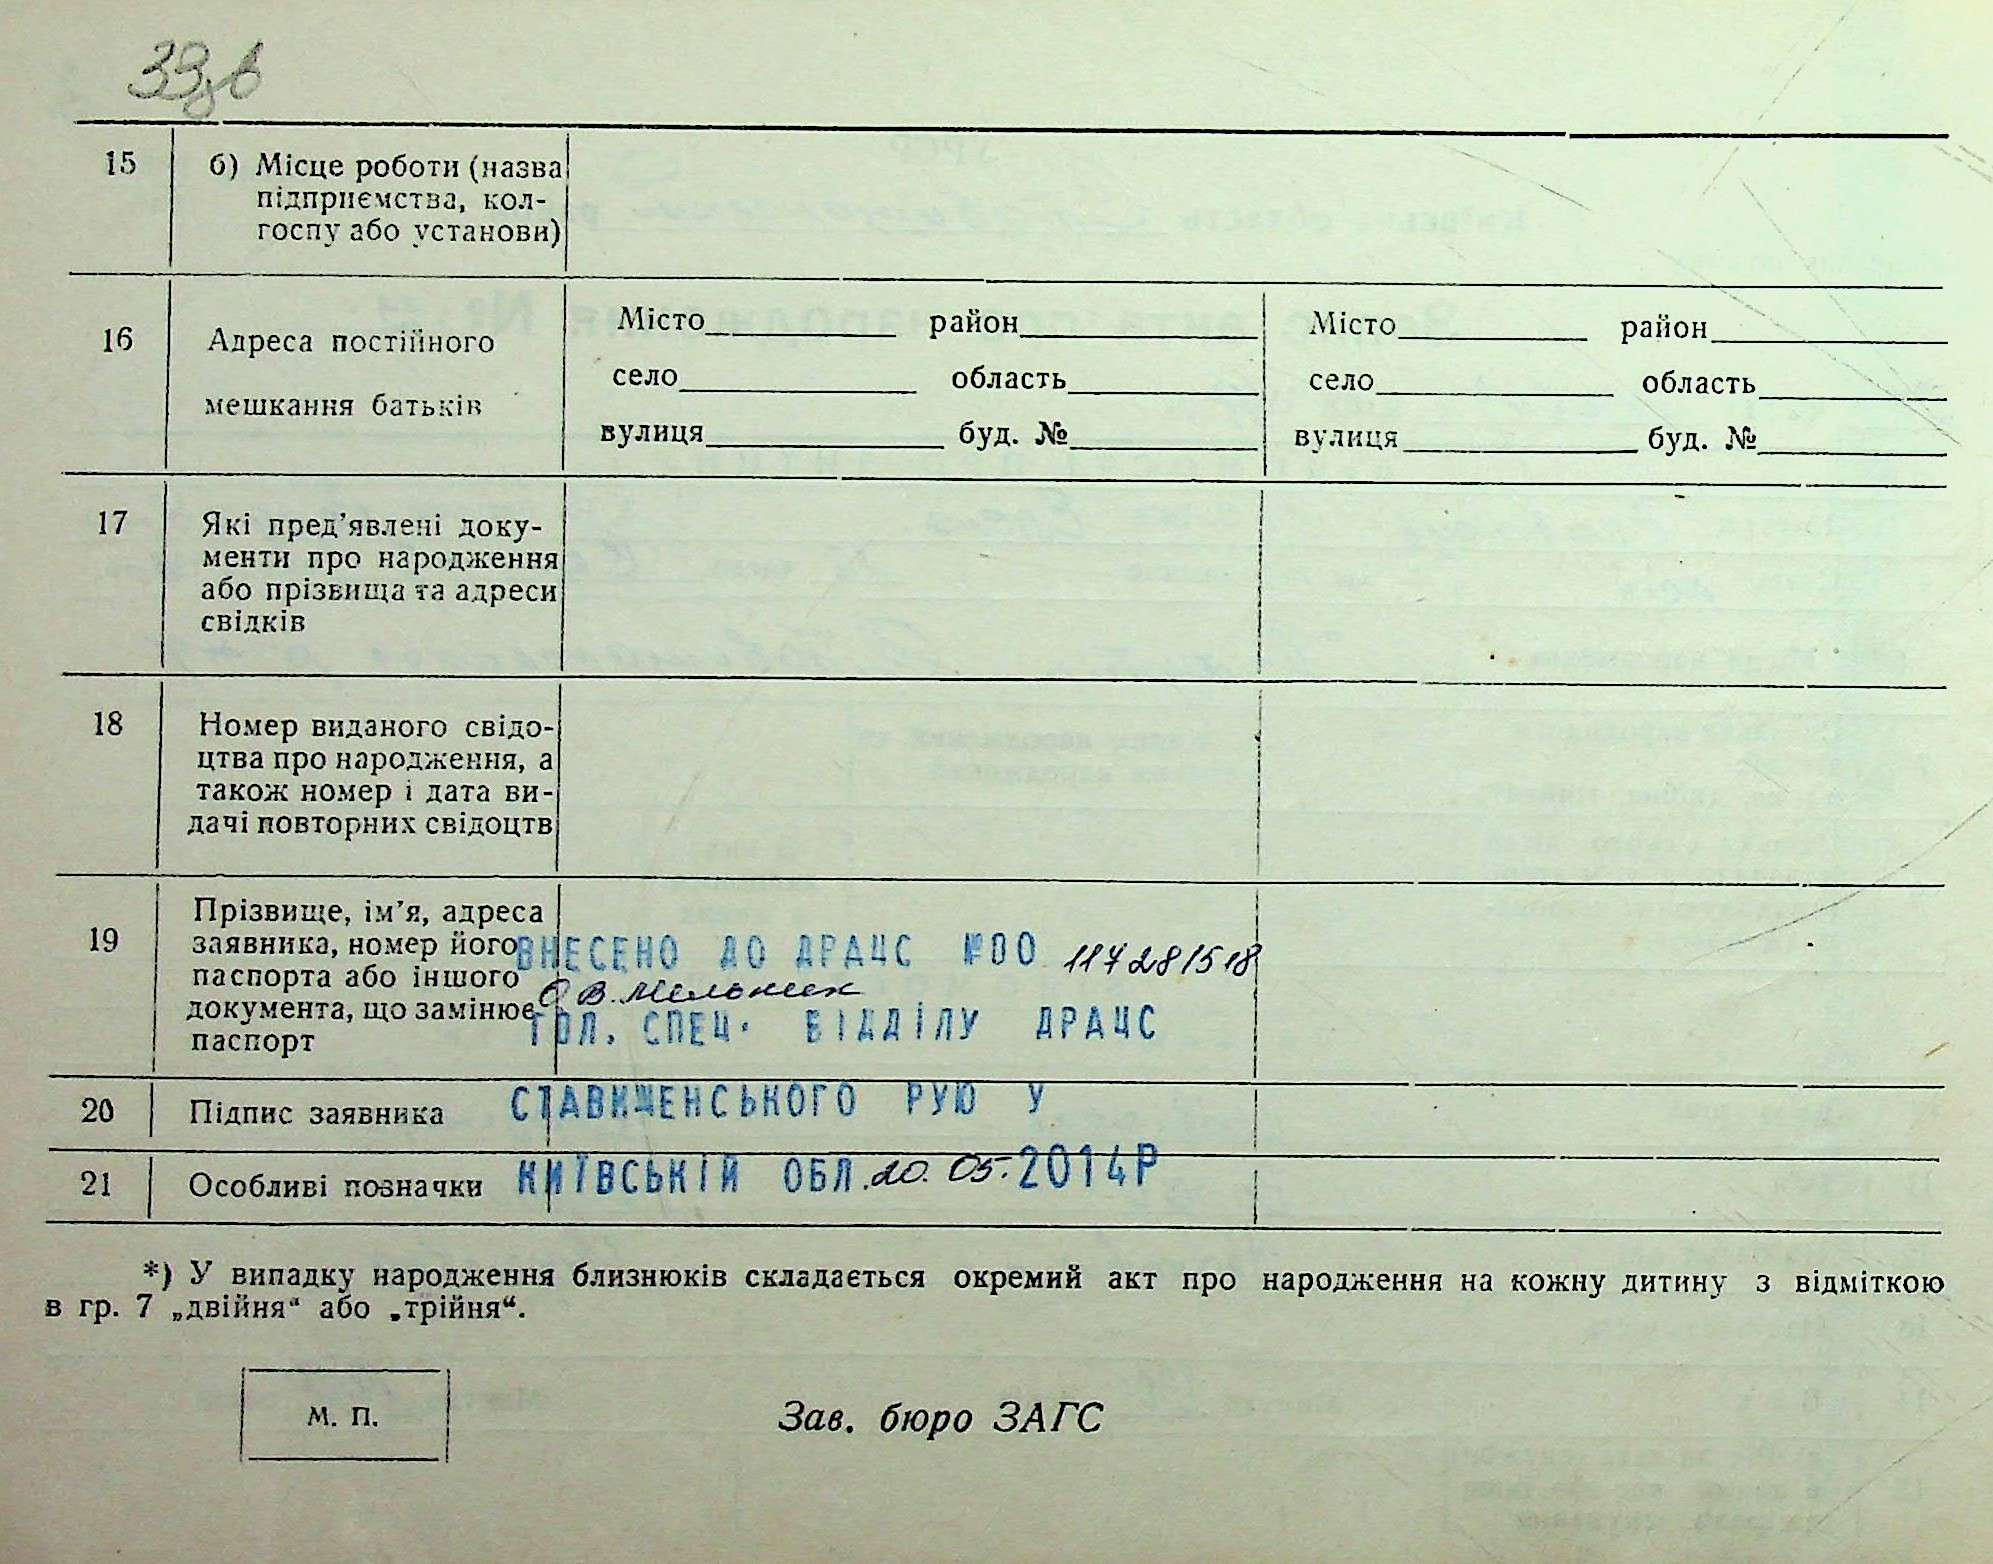 33зв
15 б) Місце роботи (назва
підприємства, кол-
госпу або установи)
16 Адреса постійного
мешкання батьків
Місто район Місто район
село область село область
вулиця буд. № вулиця буд. №
17 Які пред’явлені доку-
менти про народження
або прізвища та адреси
свідків
18 Номер виданого свідо-
цтва про народження, а
також номер і дата ви-
дачі повторних свідоцтв
19 Прізвище, ім’я, адреса
заявника, номер його
паспорта або іншого
документа, що замінює
паспорт
ВНЕСЕНО ДО ДРАЦС №00 117281518
О В. Мельник
ГОЛ. СПЕЦ. ВІДДІЛУ ДРАЦС
20 Підпис заявника
СТАВИЩЕНСЬКОГО РУЮ У
21 Особливі позначки
КИЇВСЬКІЙ ОБЛ. 20. 05. 2014Р
*) У випадку народження близнюків складається окремий акт про народження на кожну дитину з відміткою
в гр. 7 „двійня“ або „трійня“.
М. П.
Зав. бюро ЗАГС